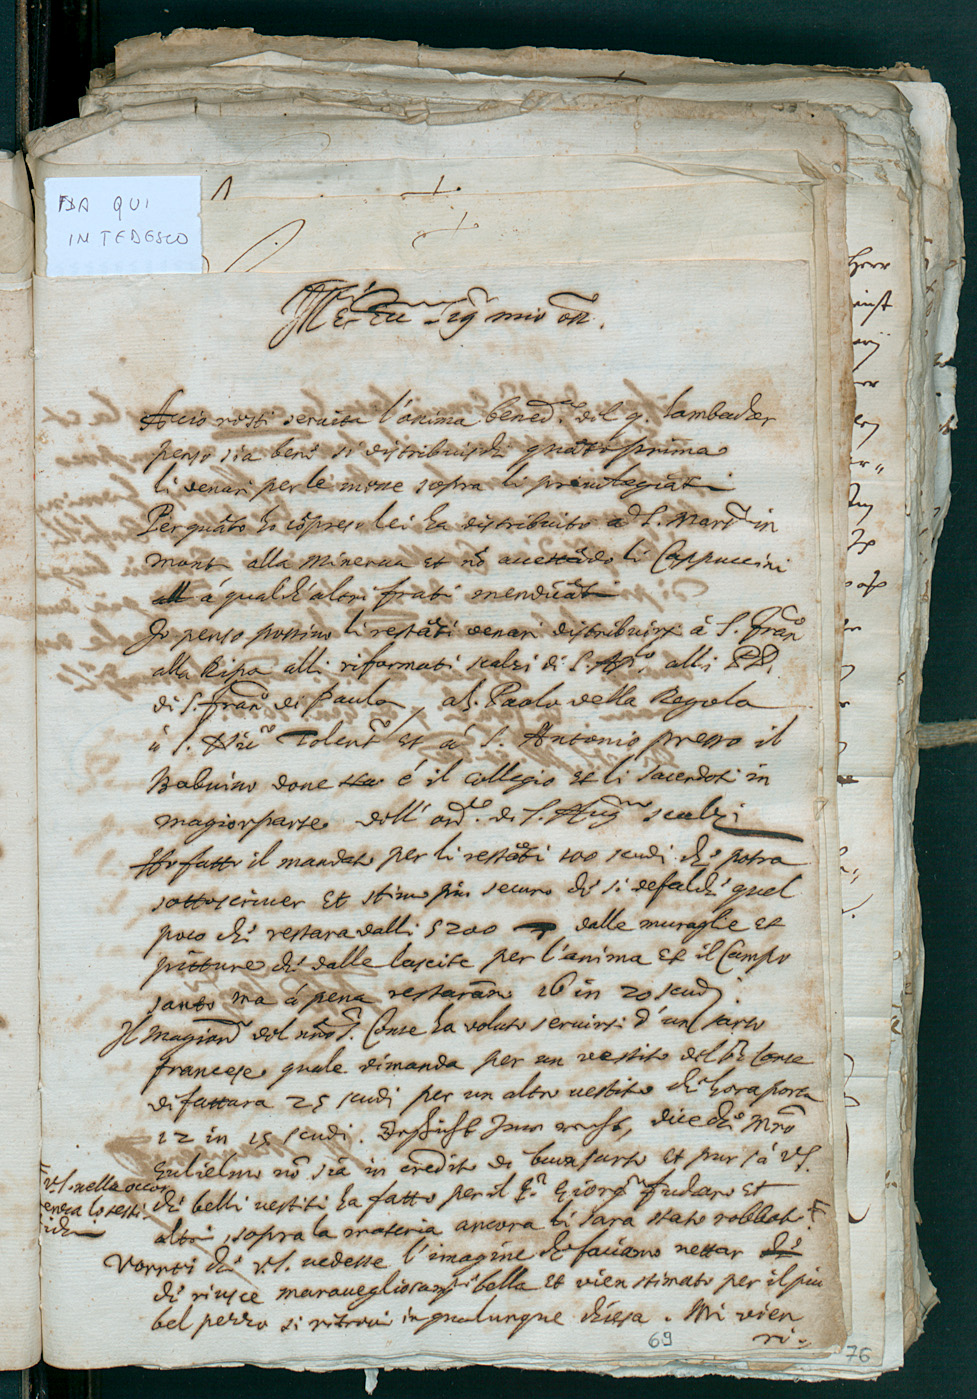 DA QUI
IN TEDESCO
Sig mio
Accio resti servita l'anima bened. del q. lambacher
penso sia bene si distribuischi quãto prima
li denari per le messe sopra li privilegiati
Per quãto ho cõpreso lei ha distribuito a S. Mart in
monti alla Minerva et nõ accettãdo li Cappuccini
all á qualch'altri frati mendicãti
Io penso possino li restãti denari distribuirsi á S. Franc
alla Ripa alli riformati scalzi di S. alli PP.
di S. Franc di Paula, a S. Paolo della Regola
á S. Nic Tolent et á S. Antonio presso il
Babuino dove sta é il collegio et li sacerdoti in
magior parte dell' ord. di S. Aug scalzi
Ho fatto il mandato per li restãti 100 scudi che potra
sottoscriver et stimo piu securo che si defalchi quel
poco che restara dalli 5200 dalle muraglie et
pitture che dalle lascite per l'anima et il Campo
santo ma á pena restarãno 16 in 20 scudi.
Il Magior del S. Conte ha voluto servirsi d'un sarto
francese quale dimanda per un vestito del Conte
di fattura 25 scudi per un altro vestito che hora porta
12 in 15 scudi. dice che Mro
Gulielmo nõ sia in credito di buon sarto et pur sa V.S.
che belli vestiti ha fatto per il Giorg Fudaro et
altri sopra la materia ancora li sara stato robbato
V.S. nella occor
enza lo testi
fichi
Vorrei che V.S. vedesse l'imagine che faciamo nettar che
che riusce maravegliosam bella et vien stimato per il piu
bel pezzo si ritrovi in qualunque chiesa. Mi vien
ri-
69
76